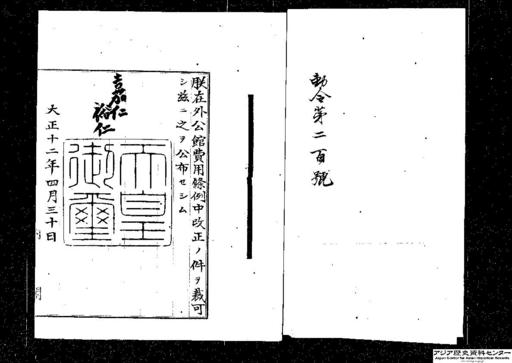 勅令第二百號
朕在外公館費用條例中改正ノ件ヲ裁可
シ茲ニ之ヲ公布セシム
嘉仁
裕仁
天皇
御璽
大正十二年四月三十日
アジア歴史資料センター
Japan Center for Asian Historical Records